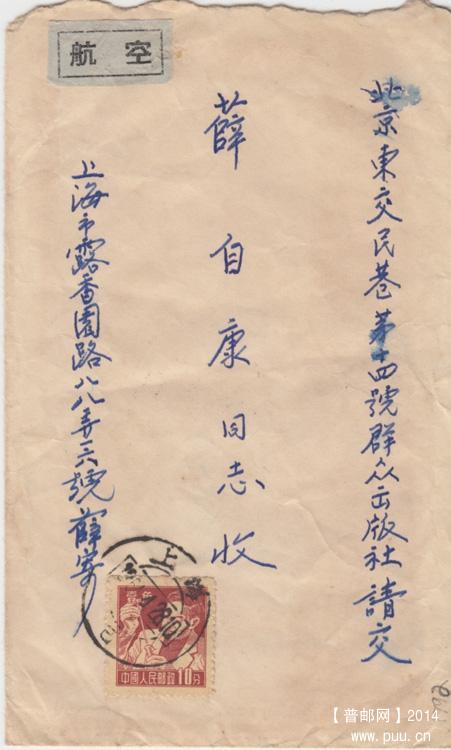 航空
北京東交民巷第十四號群众出版社請交
薛自康同志收
上海市露香園路八八弄三六號薛寄
上海
中國人民邮政 10分
【普邮网】2014
www.puu.cn